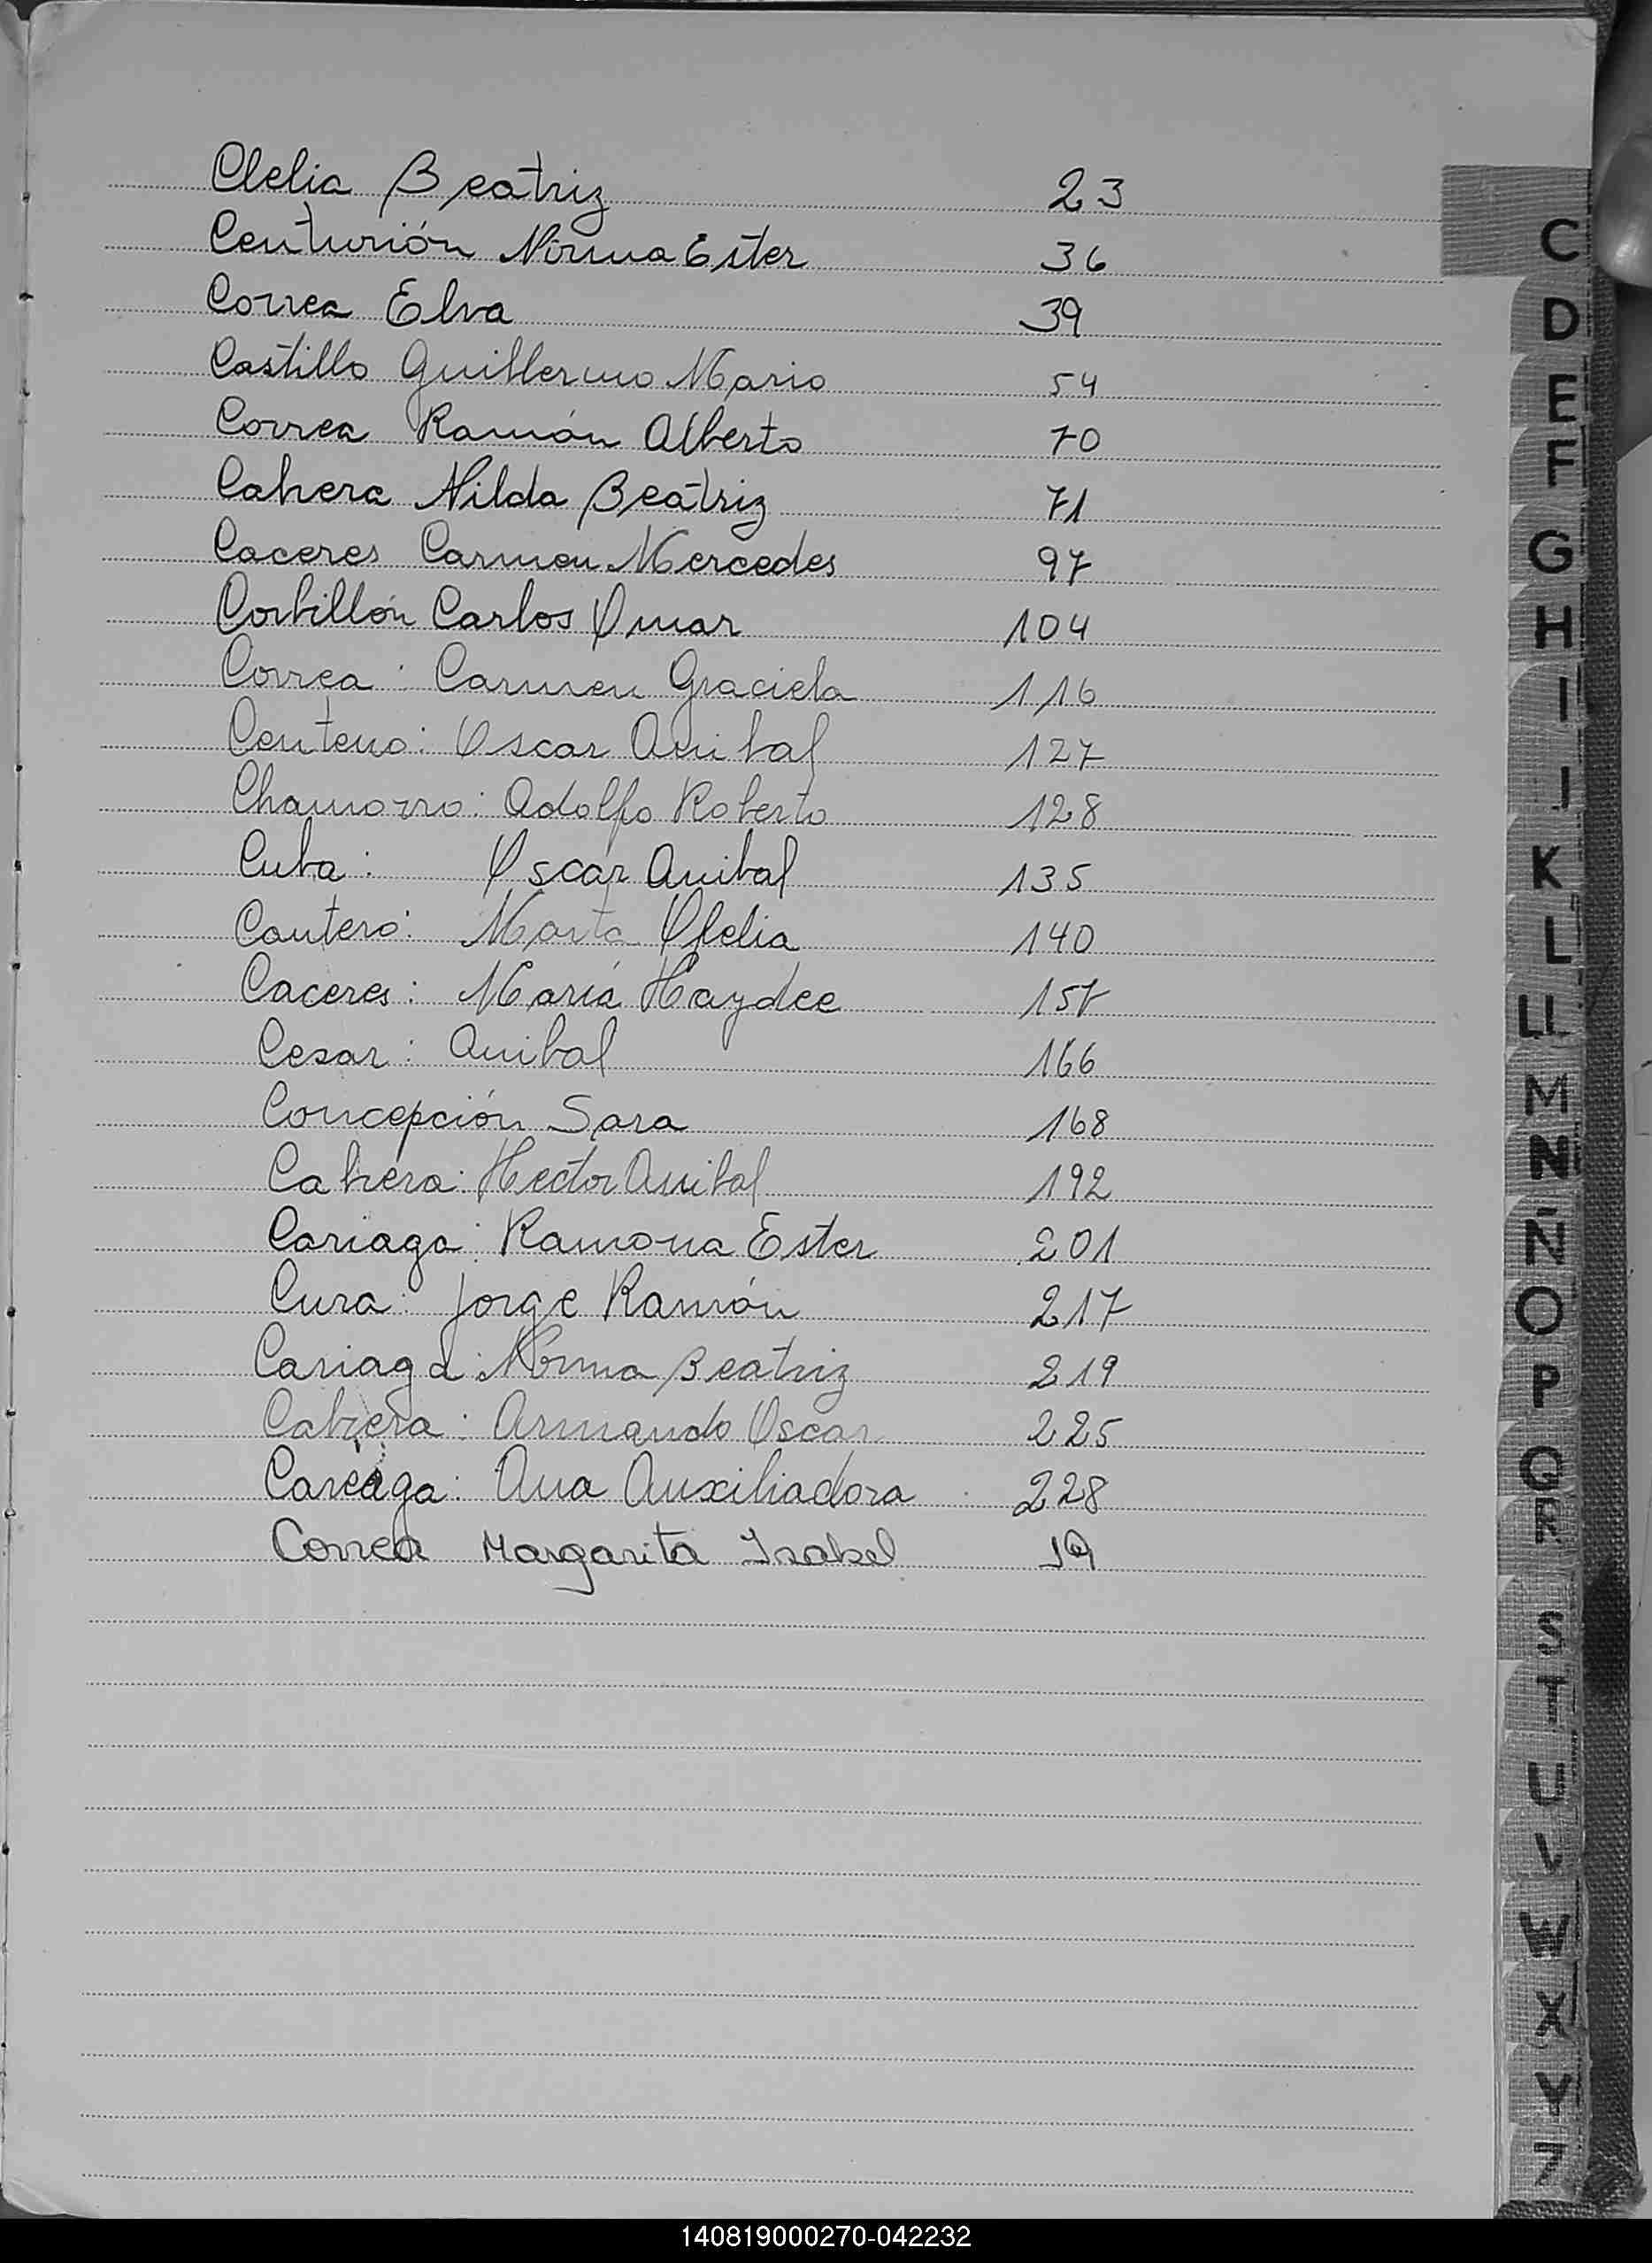 Clelia Beatriz 23
Centurión Norma Ester 36
Correa Elva 39
Castillo Guillermo Mario 54
Correa Ramón Alberto 70
Cabrera Nilda Beatriz 71
Caceres Carmen Mercedes 97
Corbillón Carlos Omar 104
Correa : Carmen Graciela 116
Centeno : Oscar Anibal 127
Chamorro : Adolfo Roberto 128
Cuba : Oscar Anibal 135
Cantero : Marta Ofelia 140
Caceres : María Haydee 157
Cesar : Anibal 166
Concepción Sara 168
Cabrera : Hector Anibal 192
Cariaga : Ramona Ester 201
Cura : Jorge Ramón 217
Cariaga : Norma Beatriz 219
Cabrera : Armando Oscar 225
Careaga : Ana Auxiliadora 228
Correa Margarita Isabel 19
C
D
E
F
G
H
I
J
K
L
LL
M
N
Ñ
O
P
Q
R
S
T
U
V
W
X
Y
Z
140819000270-042232